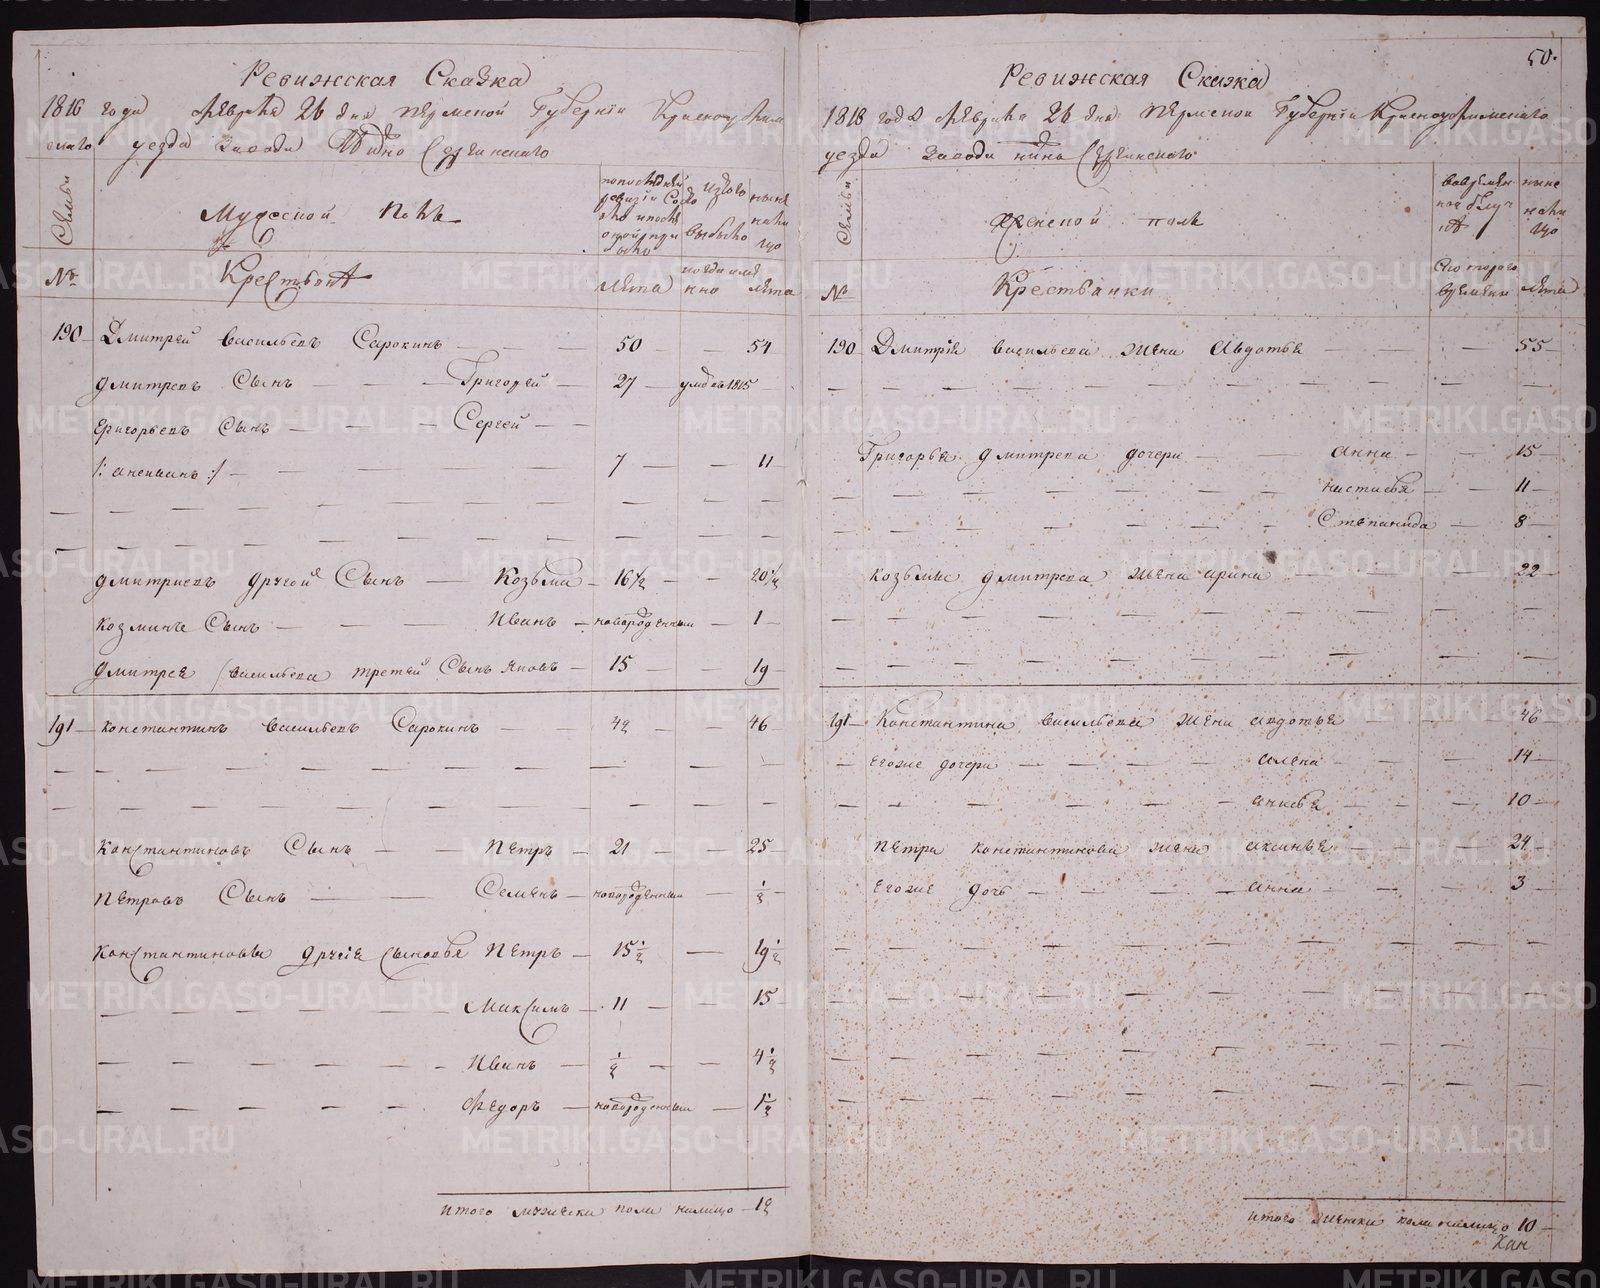 Ревижская Сказка
1816 года Февраля 26 дня Пермской Губернiи Красноуфим
скаго уезда Завода Нижно Сергинскаго
Семьи
Мужеской Полъ
попоследней
ревизiи Сос
было
изтого
выбыло
ныне
налицо
№
Крестьянъ
Лета
когда имя
нно
Лета
190 Дмитрей васильевъ Сарокинъ 50 54
дмитревъ Сынъ Григорей 27 умре въ 1815
григорьевъ Сынъ Сергей
7 11
дмитриевъ другой Сынъ Козьма 16½ 20½
козминъ Сынъ Иванъ новорожденный 1
дмитрея васильева третей Сынъ яковъ 15 19
191 константинъ васильевъ Сарокинъ 42 46
Константиновъ Сынъ Петръ 21 25
Петровъ Сынъ Семенъ новорожденный ½
Константиновы другiе Сыновья Петръ 15½ 19½
Максимъ 11 15
Иванъ ½ 4½
Федоръ новорожденный 1½
итого мужеска пола налицо 12
50.
Ревижская Сказка
1816 года Февраля 26 дня Пермской Губернiи Красноуфимскаго
уезда Завода нижно Сергинскаго
Семьи
Женской полъ
вовремен
ной отлуч
ке
ныне
нали
цо
№
Крестьянки
Скотораго
времени
Лета
190 Дмитрiя васильева жена Авдотья 55
Григорья дмитрева дочери анна 15
настасья 11
Степанида 8
козьмы дмитрева жена арина 22
191 Константина васильева жена авдотья 46
Егоже дочери алена 14
10
петра константинова жена аксинья 24
Егоже дочь анна 3
итого женска пола налицо 10